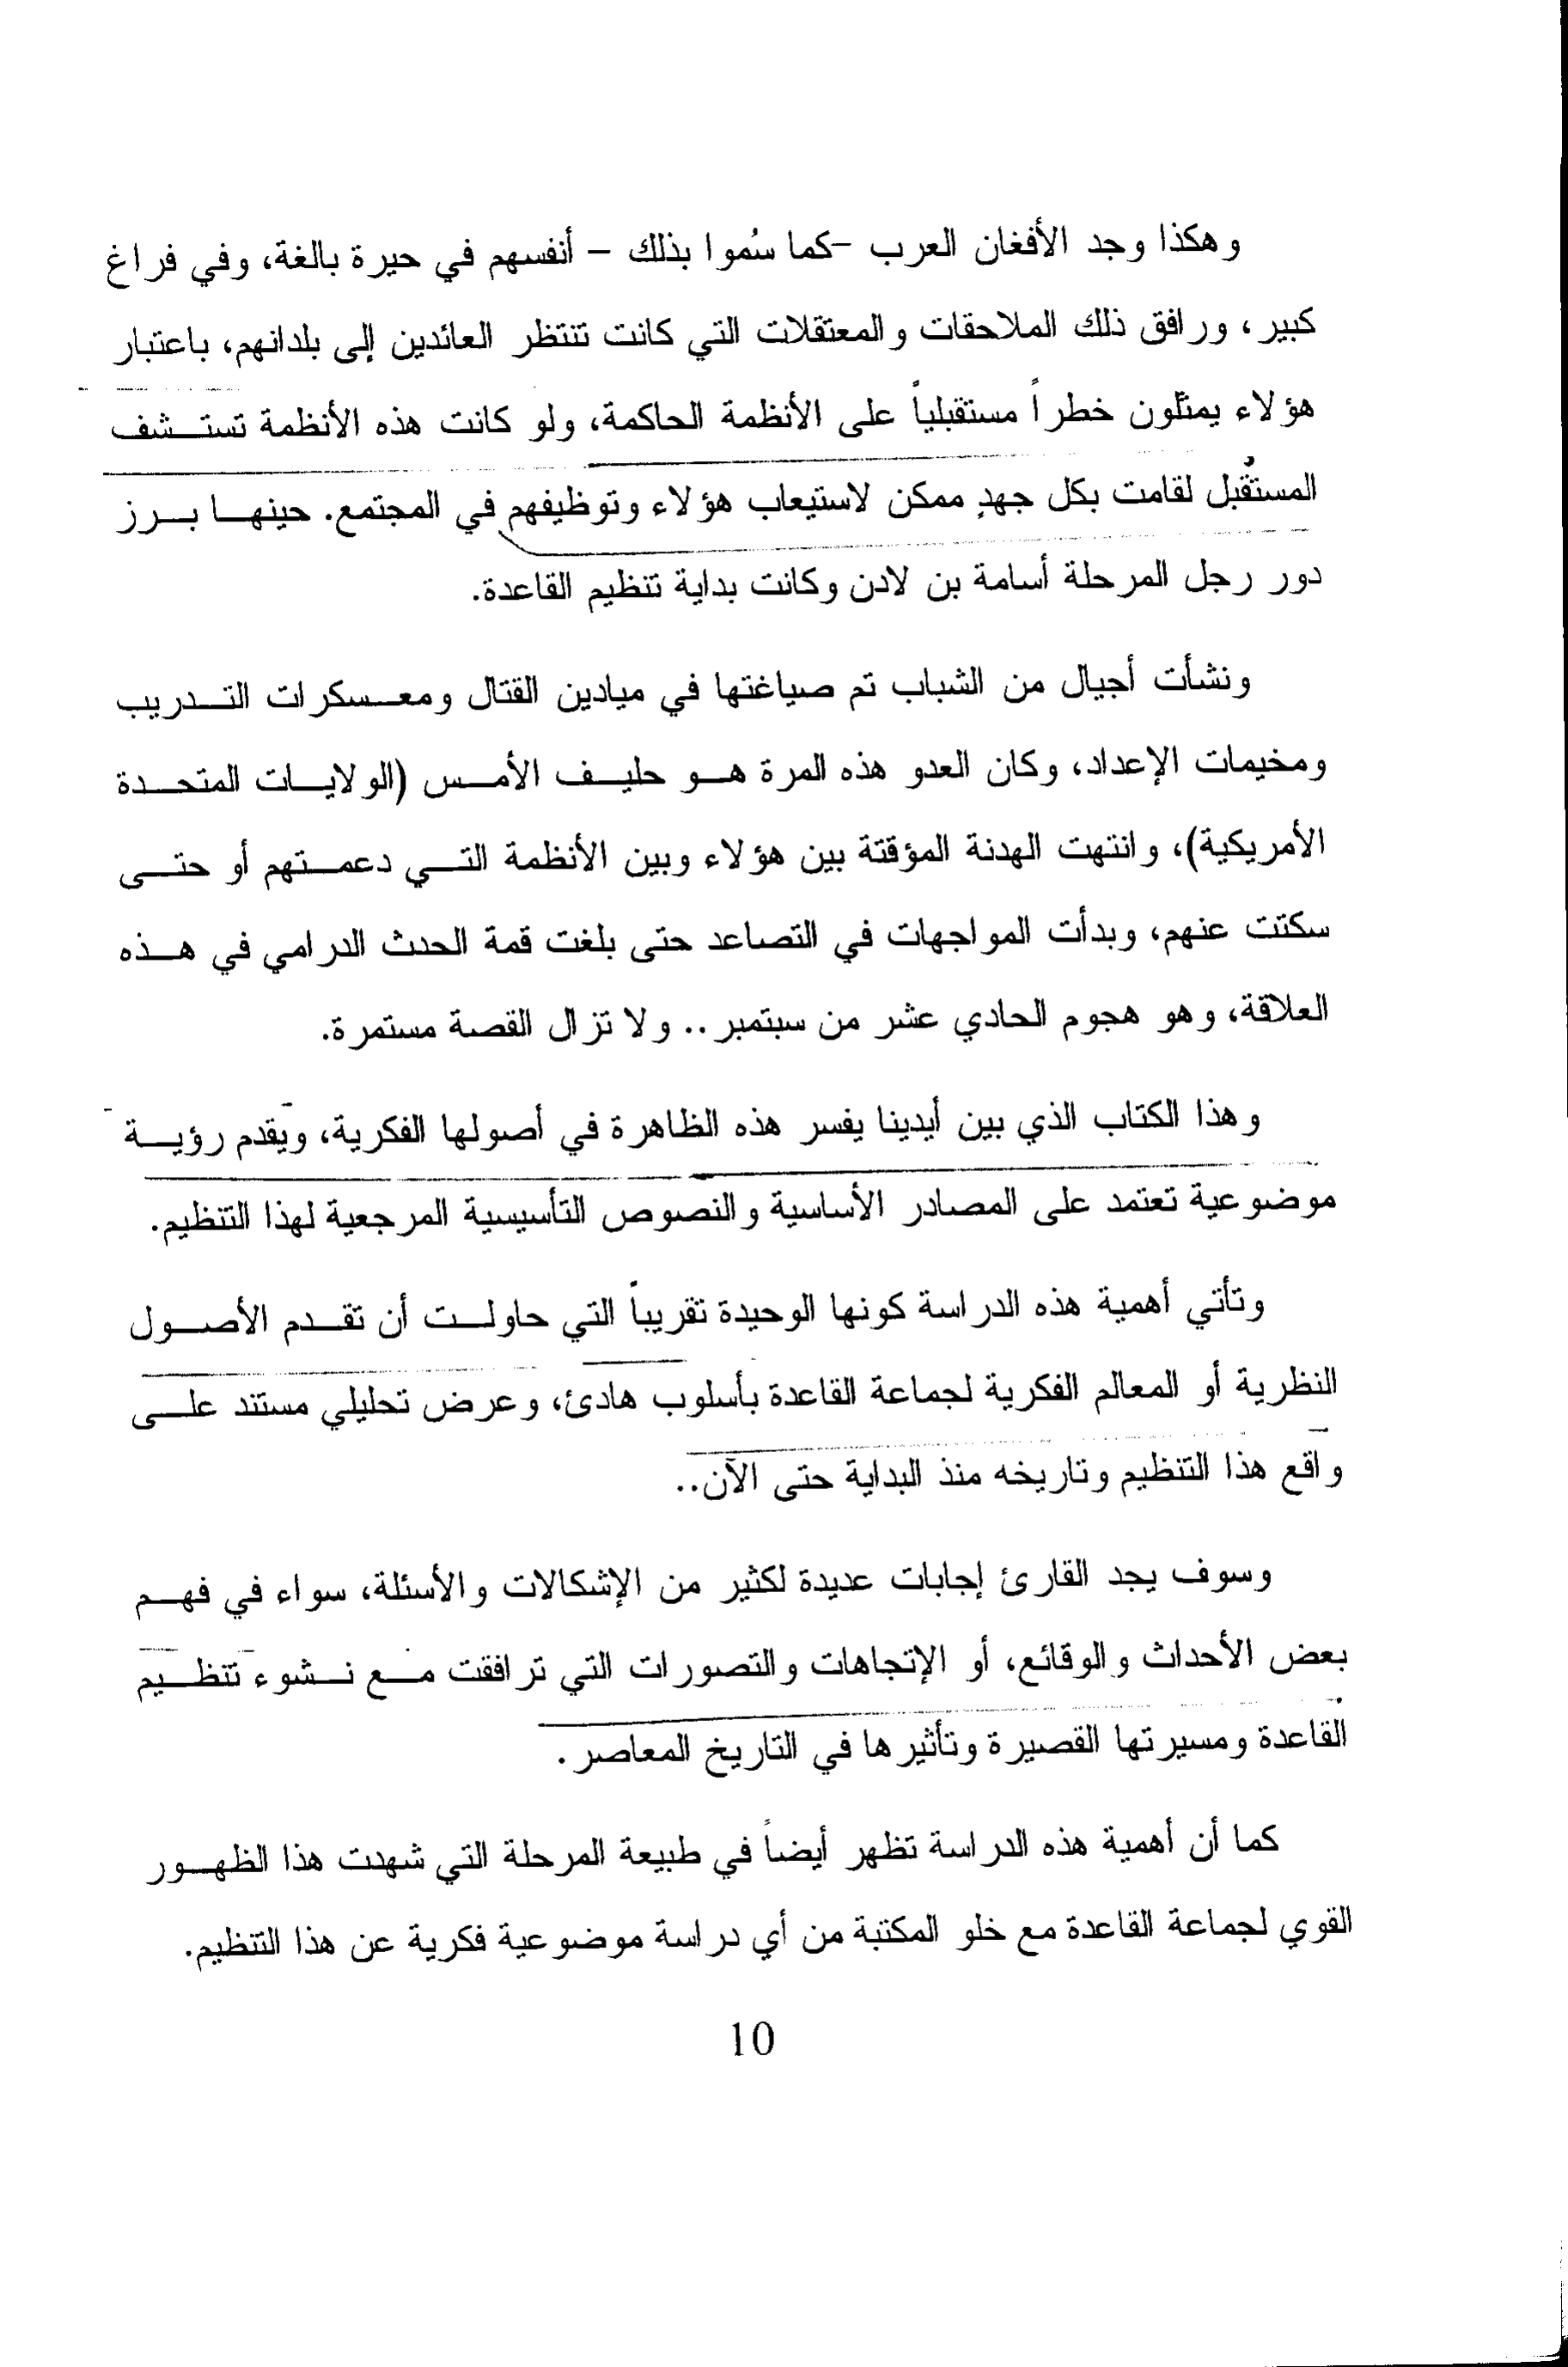 وهكذا وجد الأفغان العرب -كما سُموا بذلك – أنفسهم في حيرة بالغة، وفي فراغ
كبير، ورافق ذلك الملاحقات والمعتقلات التي كانت تنتظر العائدين إلى بلدانهم، باعتبار
هؤلاء يمثلون خطراً مستقبلياً على الأنظمة الحاكمة، ولو كانت هذه الأنظمة تستشف
المستقبل لقامت بكل جهدٍ ممكن لاستيعاب هؤلاء وتوظيفهم في المجتمع. حينها برز
دور رجل المرحلة أسامة بن لادن وكانت بداية تنظيم القاعدة.
ونشأت أجيال من الشباب تم صياغتها في ميادين القتال ومعسكرات التدريب
ومخيمات الإعداد، وكان العدو هذه المرة هو حليف الأمس (الولايات المتحدة
الأمريكية)، وانتهت الهدنة المؤقتة بين هؤلاء وبين الأنظمة التي دعمتهم أو حتى
سكتت عنهم، وبدأت المواجهات في التصاعد حتى بلغت قمة الحدث الدرامي في هذه
العلاقة، وهو هجوم الحادي عشر من سبتمبر.. ولا تزال القصة مستمرة.
وهذا الكتاب الذي بين أيدينا يفسر هذه الظاهرة في أصولها الفكرية، ويقدم رؤية
موضوعية تعتمد على المصادر الأساسية والنصوص التأسيسية المرجعية لهذا التنظيم.
وتأتي أهمية هذه الدراسة كونها الوحيدة تقريباً التي حاولت أن تقدم الأصول
النظرية أو المعالم الفكرية لجماعة القاعدة بأسلوب هادئ، وعرض تحليلي مستند على
واقع هذا التنظيم وتاريخه منذ البداية حتى الآن..
وسوف يجد القارئ إجابات عديدة لكثير من الإشكالات والأسئلة، سواء في فهم
بعض الأحداث والوقائع، أو الإتجاهات والتصورات التي ترافقت مع نشوء تنظيم
القاعدة ومسيرتها القصيرة وتأثيرها في التاريخ المعاصر.
كما أن أهمية هذه الدراسة تظهر أيضاً في طبيعة المرحلة التي شهدت هذا الظهور
القوي لجماعة القاعدة مع خلو المكتبة من أي دراسة موضوعية فكرية عن هذا التنظيم.
10